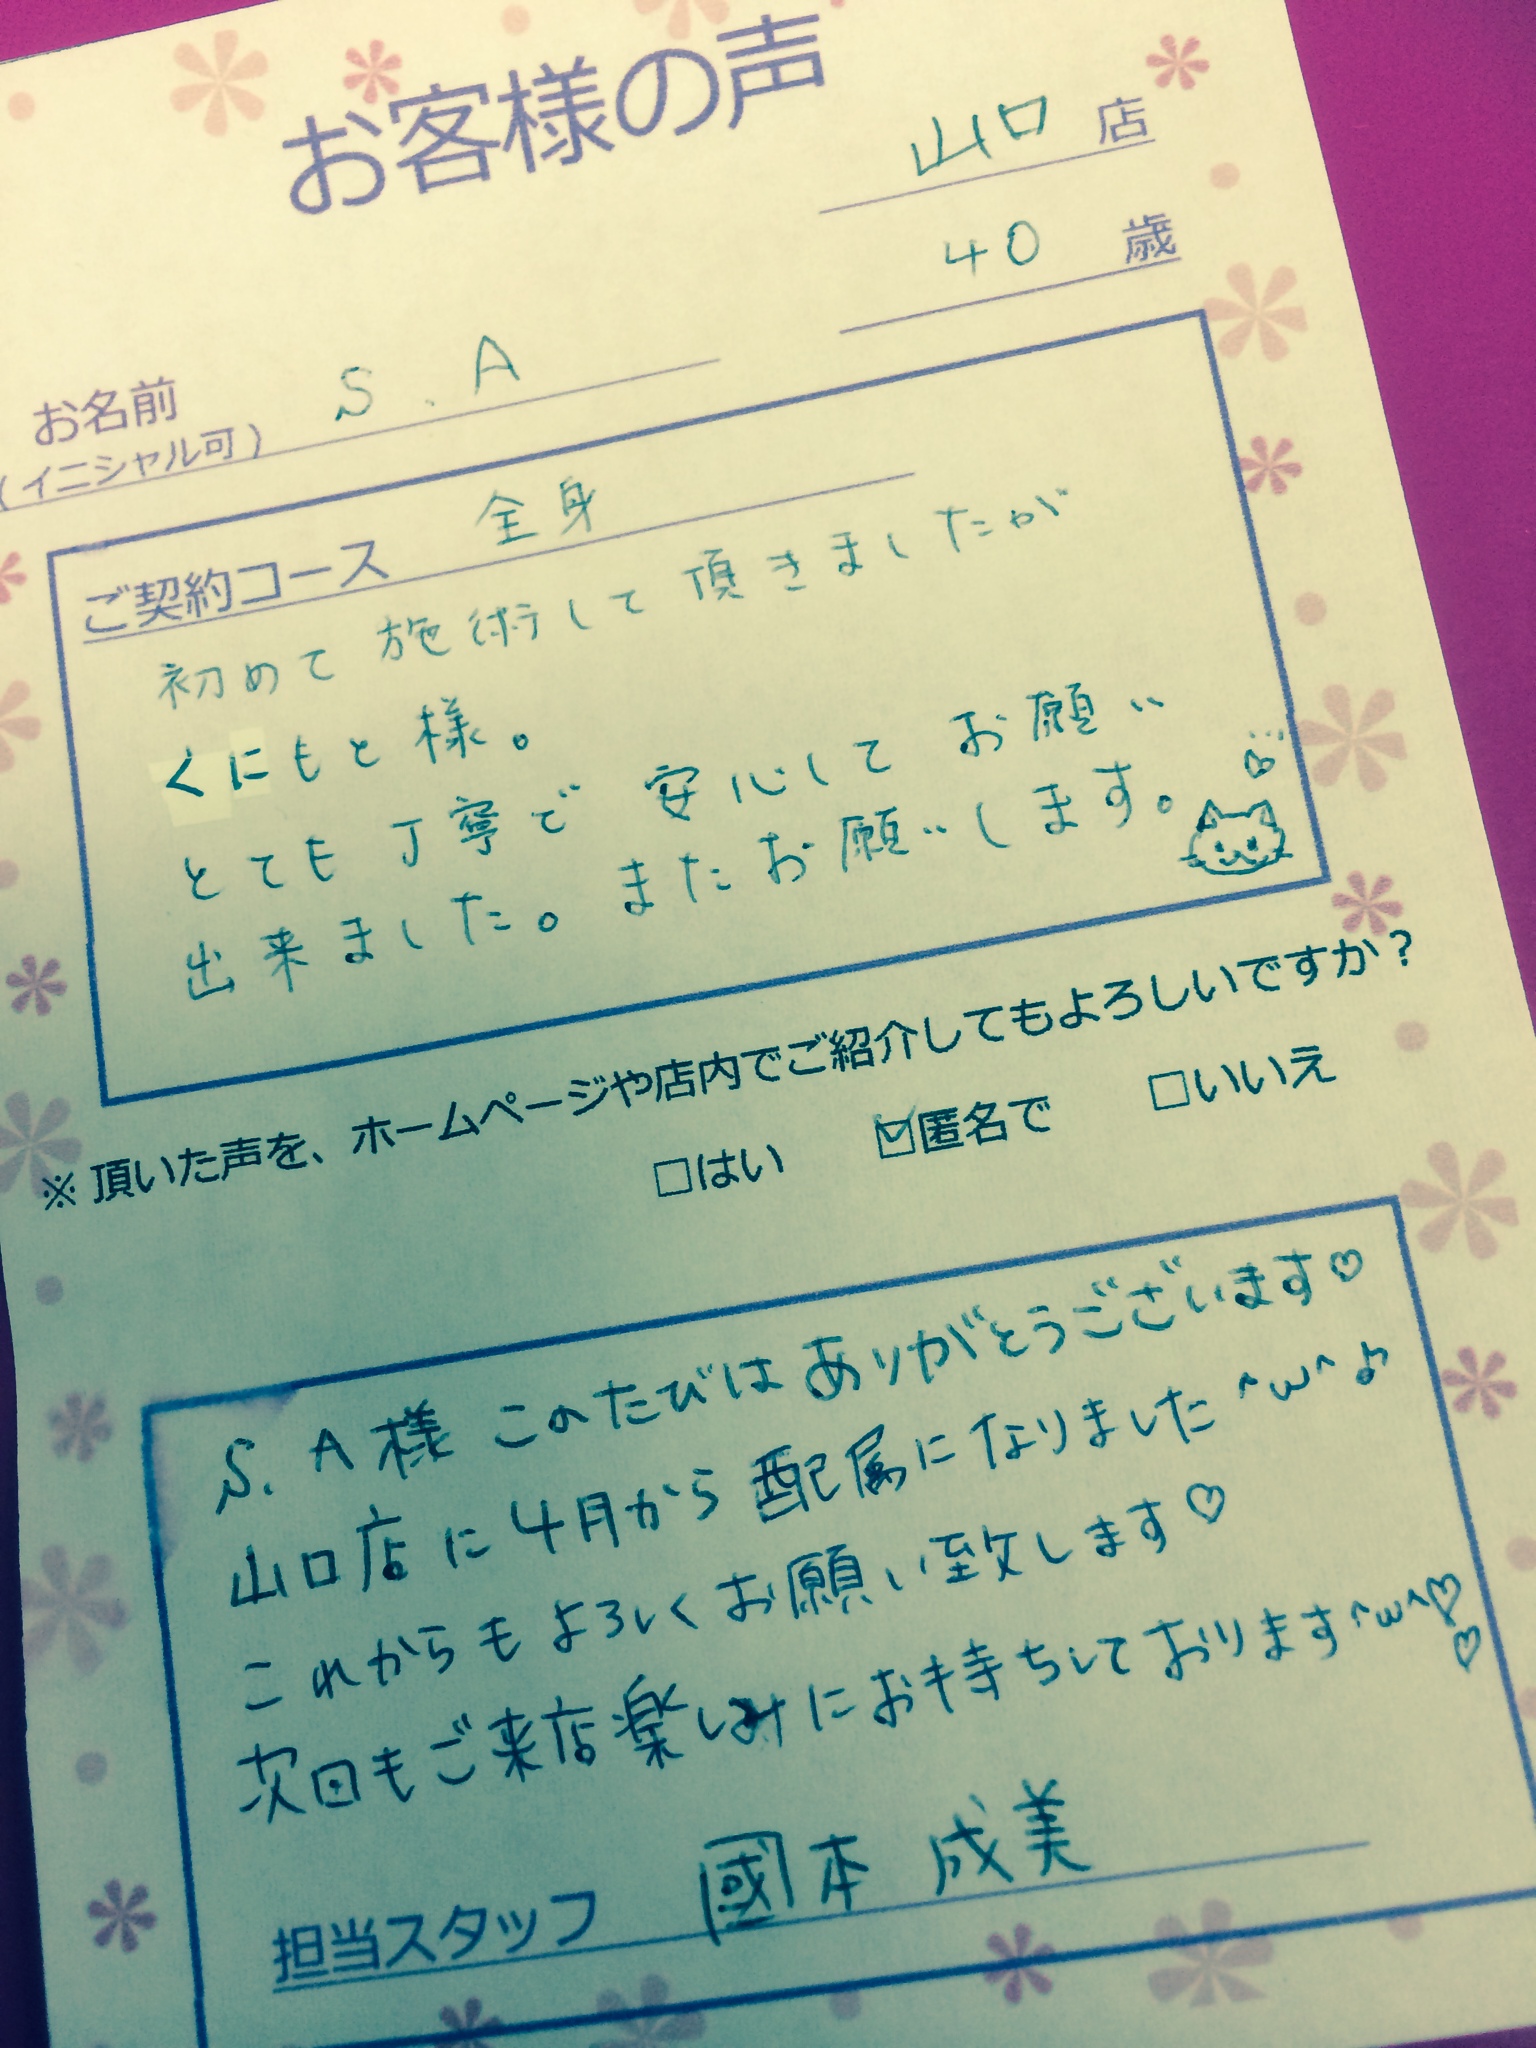 お客様の声
山口 店
40 歳
お名前
(イニシャル可) S.A
ご契約コース 全身
初めて施術して頂きましたが
くにもと様。
とても丁寧で安心してお願い
出来ました。またお願いします。
※頂いた声を、ホームページや店内でご紹介してもよろしいですか？
□はい ☑匿名で □いいえ
S.A様 このたびはありがとうございます♡
山口店に4月から配属になりました^ω^♪
これからもよろしくお願い致します♡
次回もご来店楽しみにお待ちしております^ω^♡♡
担当スタッフ 國本 成美